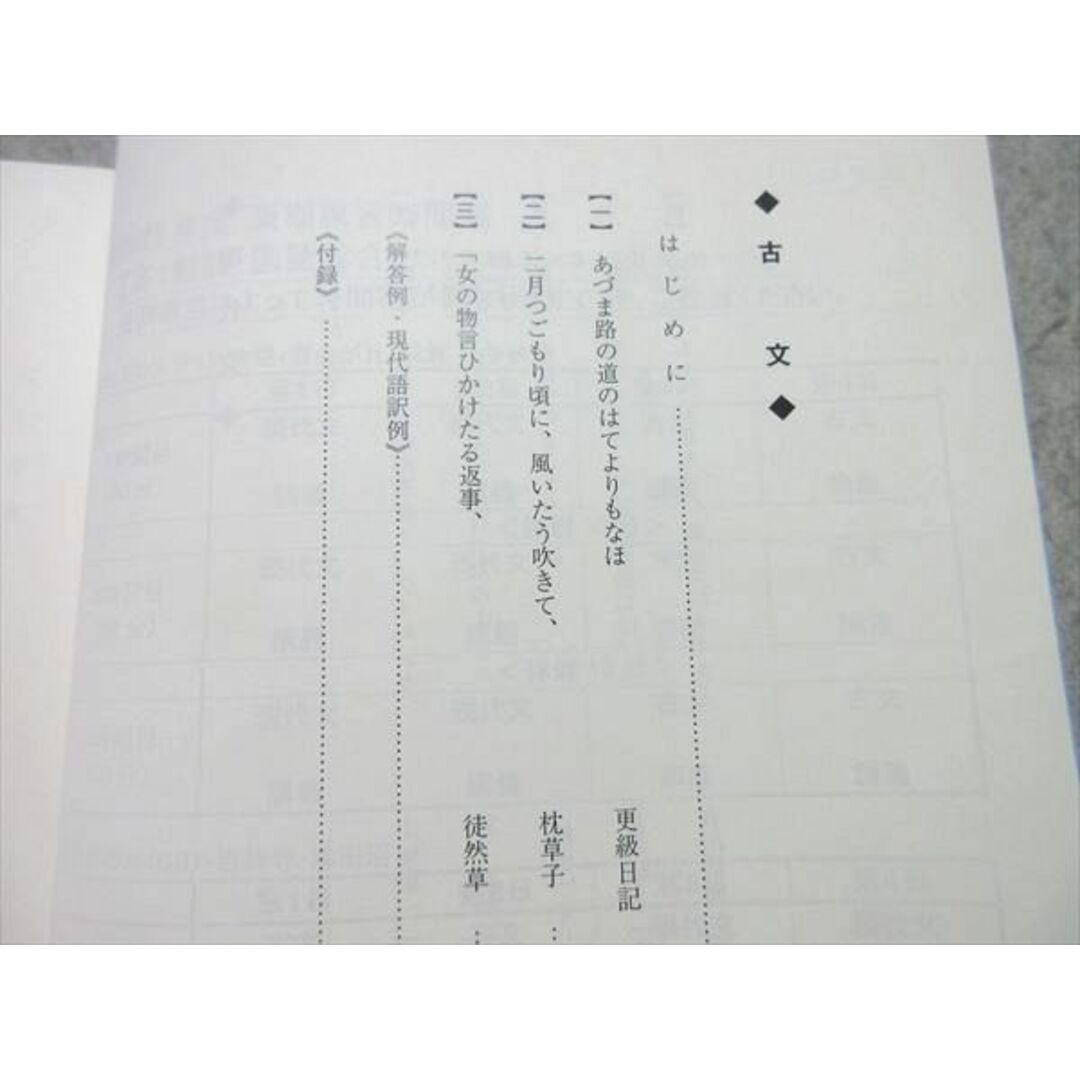 ◆古文◆
はじめに
【一】 あづま路の道のはてよりもなほ 更級日記
【二】 二月つごもり頃に、風いたう吹きて、 枕草子
【三】 「女の物言ひかけたる返事、 徒然草
《解答例・現代語訳例》
《付録》